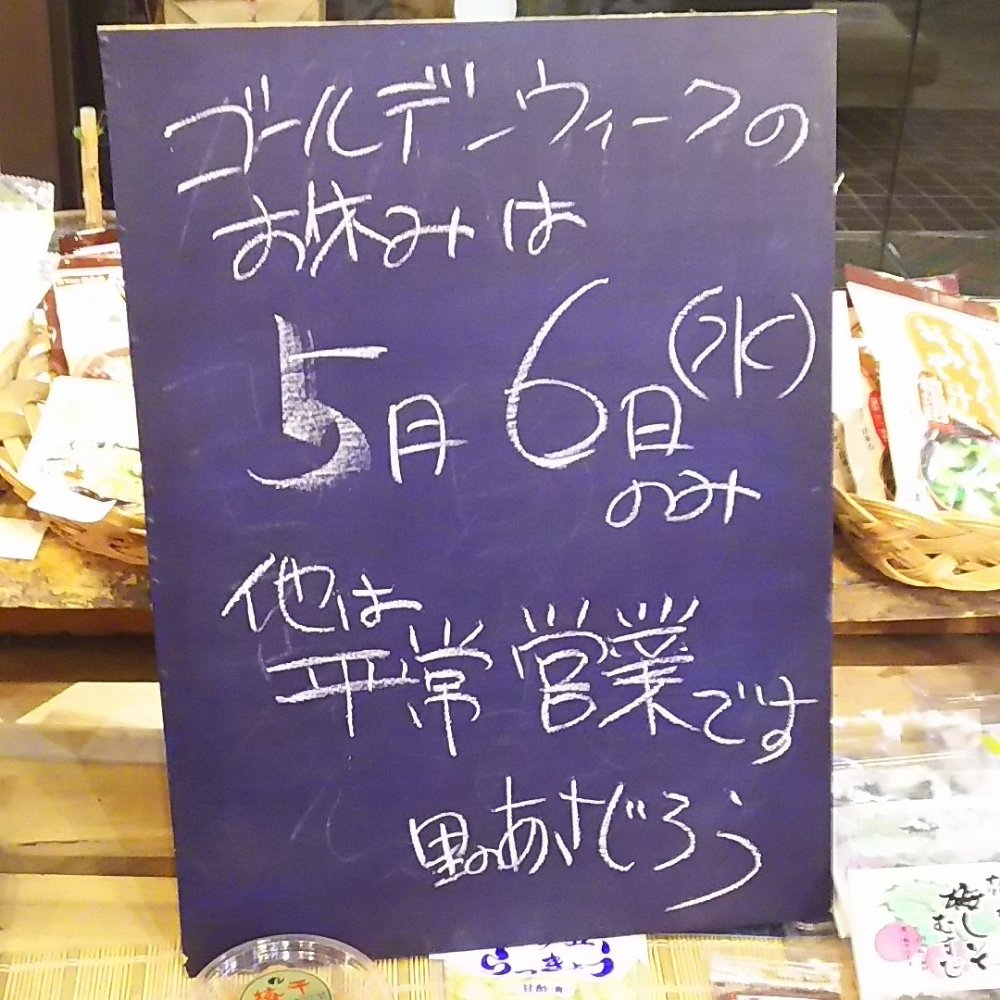 ゴールデンウィークの
お休みは
5月6日(水)
のみ
他は
平常営業です
里のあさじろう
らっきょう
甘酢漬
梅しそ
むすび